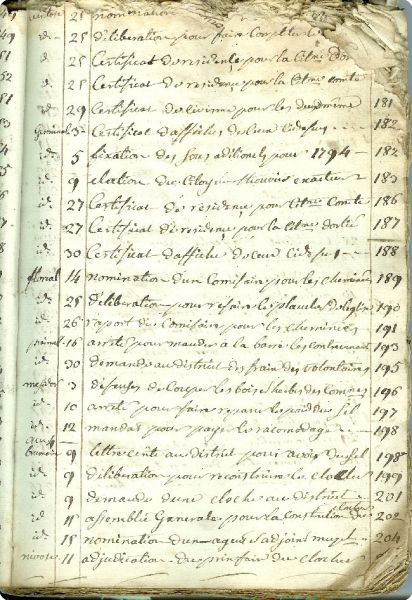 ventose 25 nomination
id. 25 déliberation pour faire
id. 25 Certificat de residence pour la Citne
id. 25 Certificat de residence pour la Citne Comte
id. 29 Certificat de civisme pour les 181
Germinal 3 Certificat d'affiches de ceux cidessus 182
id. 5 fixation des sous aditionels pour 1794 182
id. 9 election du Citoyen 183
id. 27 Certificat de residence pour Citne Comte 186
id. 27 Certificat de residence pour la Citne 187
id. 30 Certificat d'affiche de ceux cidessus 188
floreal 14 nomination d'un Comisaire pour les cheminées 189
id. 25 déliberation pour refaire le plancher de l'eglise 190
id. 26 raport du Comisaire pour les cheminées 191
prairial 16 arreté pour mander a la barre les contrevenants 193
id. 30 demande au district des frais des volontaires 195
messidor 3 défense de couper les bois et herbes des Comunes 196
id. 10 arreté pour faire reparer le poid du sel 197
id. 12 mandat pour payer le racomodage 198
brumaire 9 lettre ecrite au district pour avoir du sel 198
id. 9 déliberation pour reconstruire le clocher 199
id. 9 demande d'une cloche au district 201
id. 15 assemblée Generale pour la Construction du clocher 202
id. 15 nomination d'un agent et adjoint 204
nivose 11 adjudication du prix fait du clocher